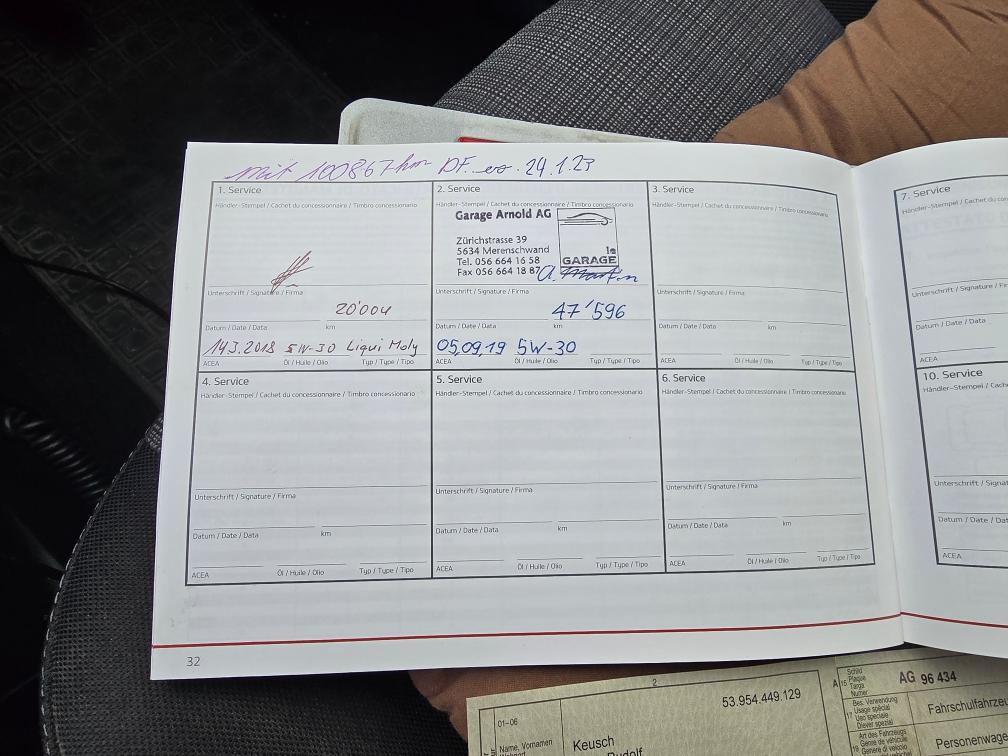 mit 100867 km DF. 24.1.23
1. Service
Händler-Stempel / Cachet du concessionnaire / Timbro concessionario
Unterschrift / Signature / Firma
20'004
Datum / Date / Data km
14.3.2018 5W-30 Liqui Moly
ACEA Öl / Huile / Olio Typ / Type / Tipo
2. Service
Händler-Stempel / Cachet du concessionnaire / Timbro concessionario
Garage Arnold AG
Zürichstrasse 39
5634 Merenschwand
Tel. 056 664 16 58
Fax 056 664 18 87
1a
GARAGE
Unterschrift / Signature / Firma
47'596
Datum / Date / Data km
05,09,19 5W-30
ACEA Öl / Huile / Olio Typ / Type / Tipo
3. Service
Händler-Stempel / Cachet du concessionnaire / Timbro concessionario
Unterschrift / Signature / Firma
Datum / Date / Data km
ACEA Öl / Huile / Olio Typ / Type / Tipo
4. Service
Händler-Stempel / Cachet du concessionnaire / Timbro concessionario
Unterschrift / Signature / Firma
Datum / Date / Data km
ACEA Öl / Huile / Olio Typ / Type / Tipo
5. Service
Händler-Stempel / Cachet du concessionnaire / Timbro concessionario
Unterschrift / Signature / Firma
Datum / Date / Data km
ACEA Öl / Huile / Olio Typ / Type / Tipo
6. Service
Händler-Stempel / Cachet du concessionnaire / Timbro concessionario
Unterschrift / Signature / Firma
Datum / Date / Data km
ACEA Öl / Huile / Olio Typ / Type / Tipo
32
7. Service
Händler-Stempel / Cachet du
Unterschrift / Signature /
Datum / Date / Data
ACEA
10. Service
Händler-Stempel /
Unterschrift /
Datum / Date / Data
ACEA
2
01-06
53.954.449.129
Name, Vornamen
Keusch
Rudolf
A
15
Schild
Plaque
Targa
Numer
AG 96 434
17
Bes. Verwendung
Usage spécial
Uso speciale
Diever spezial
Fahrschulfahrzeu
Art des Fahrzeugs
Genre de véhicule
Genere di veicolo
Personenwage